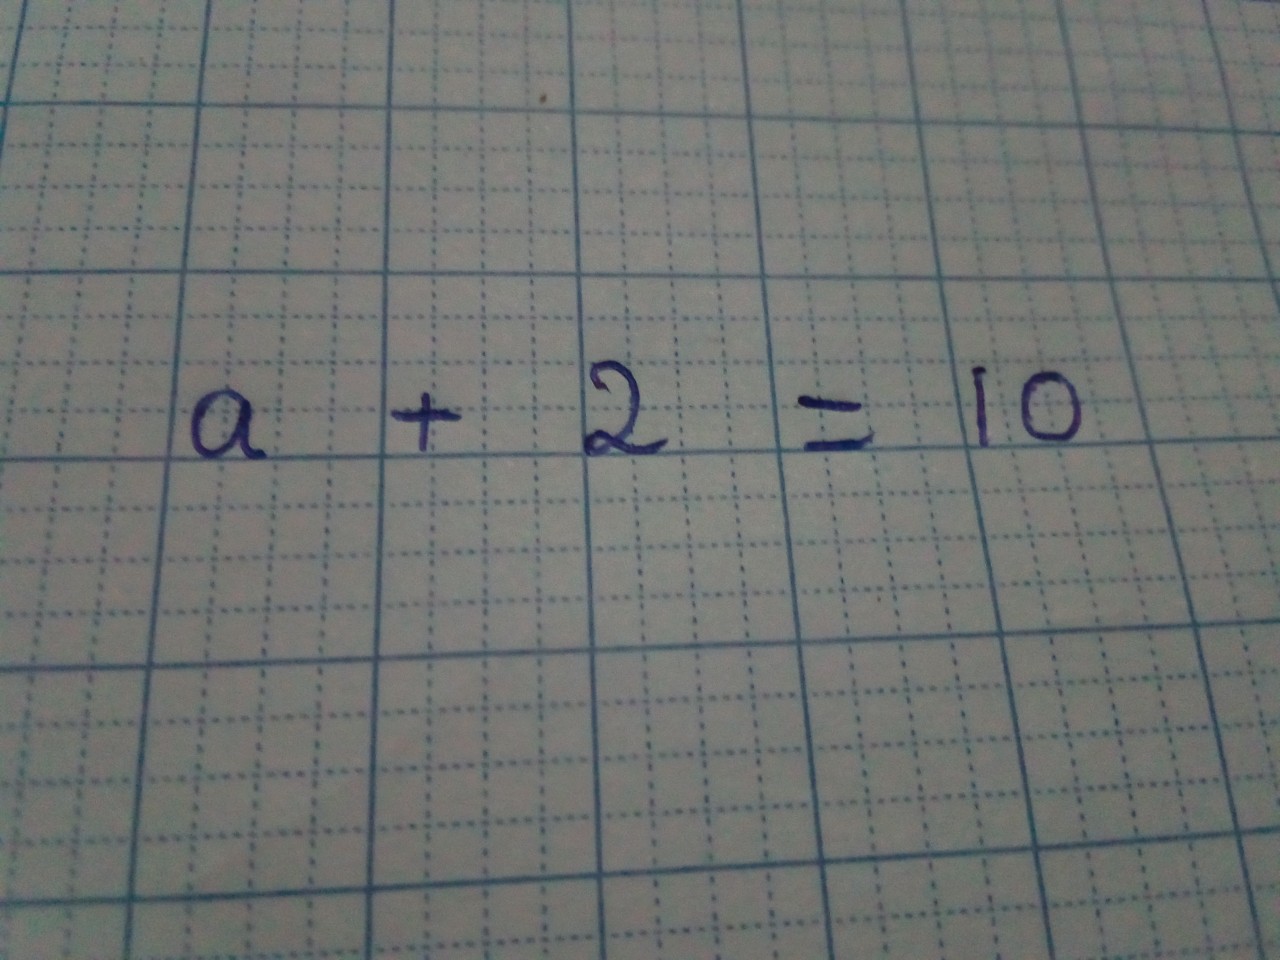 a + 2 = 10